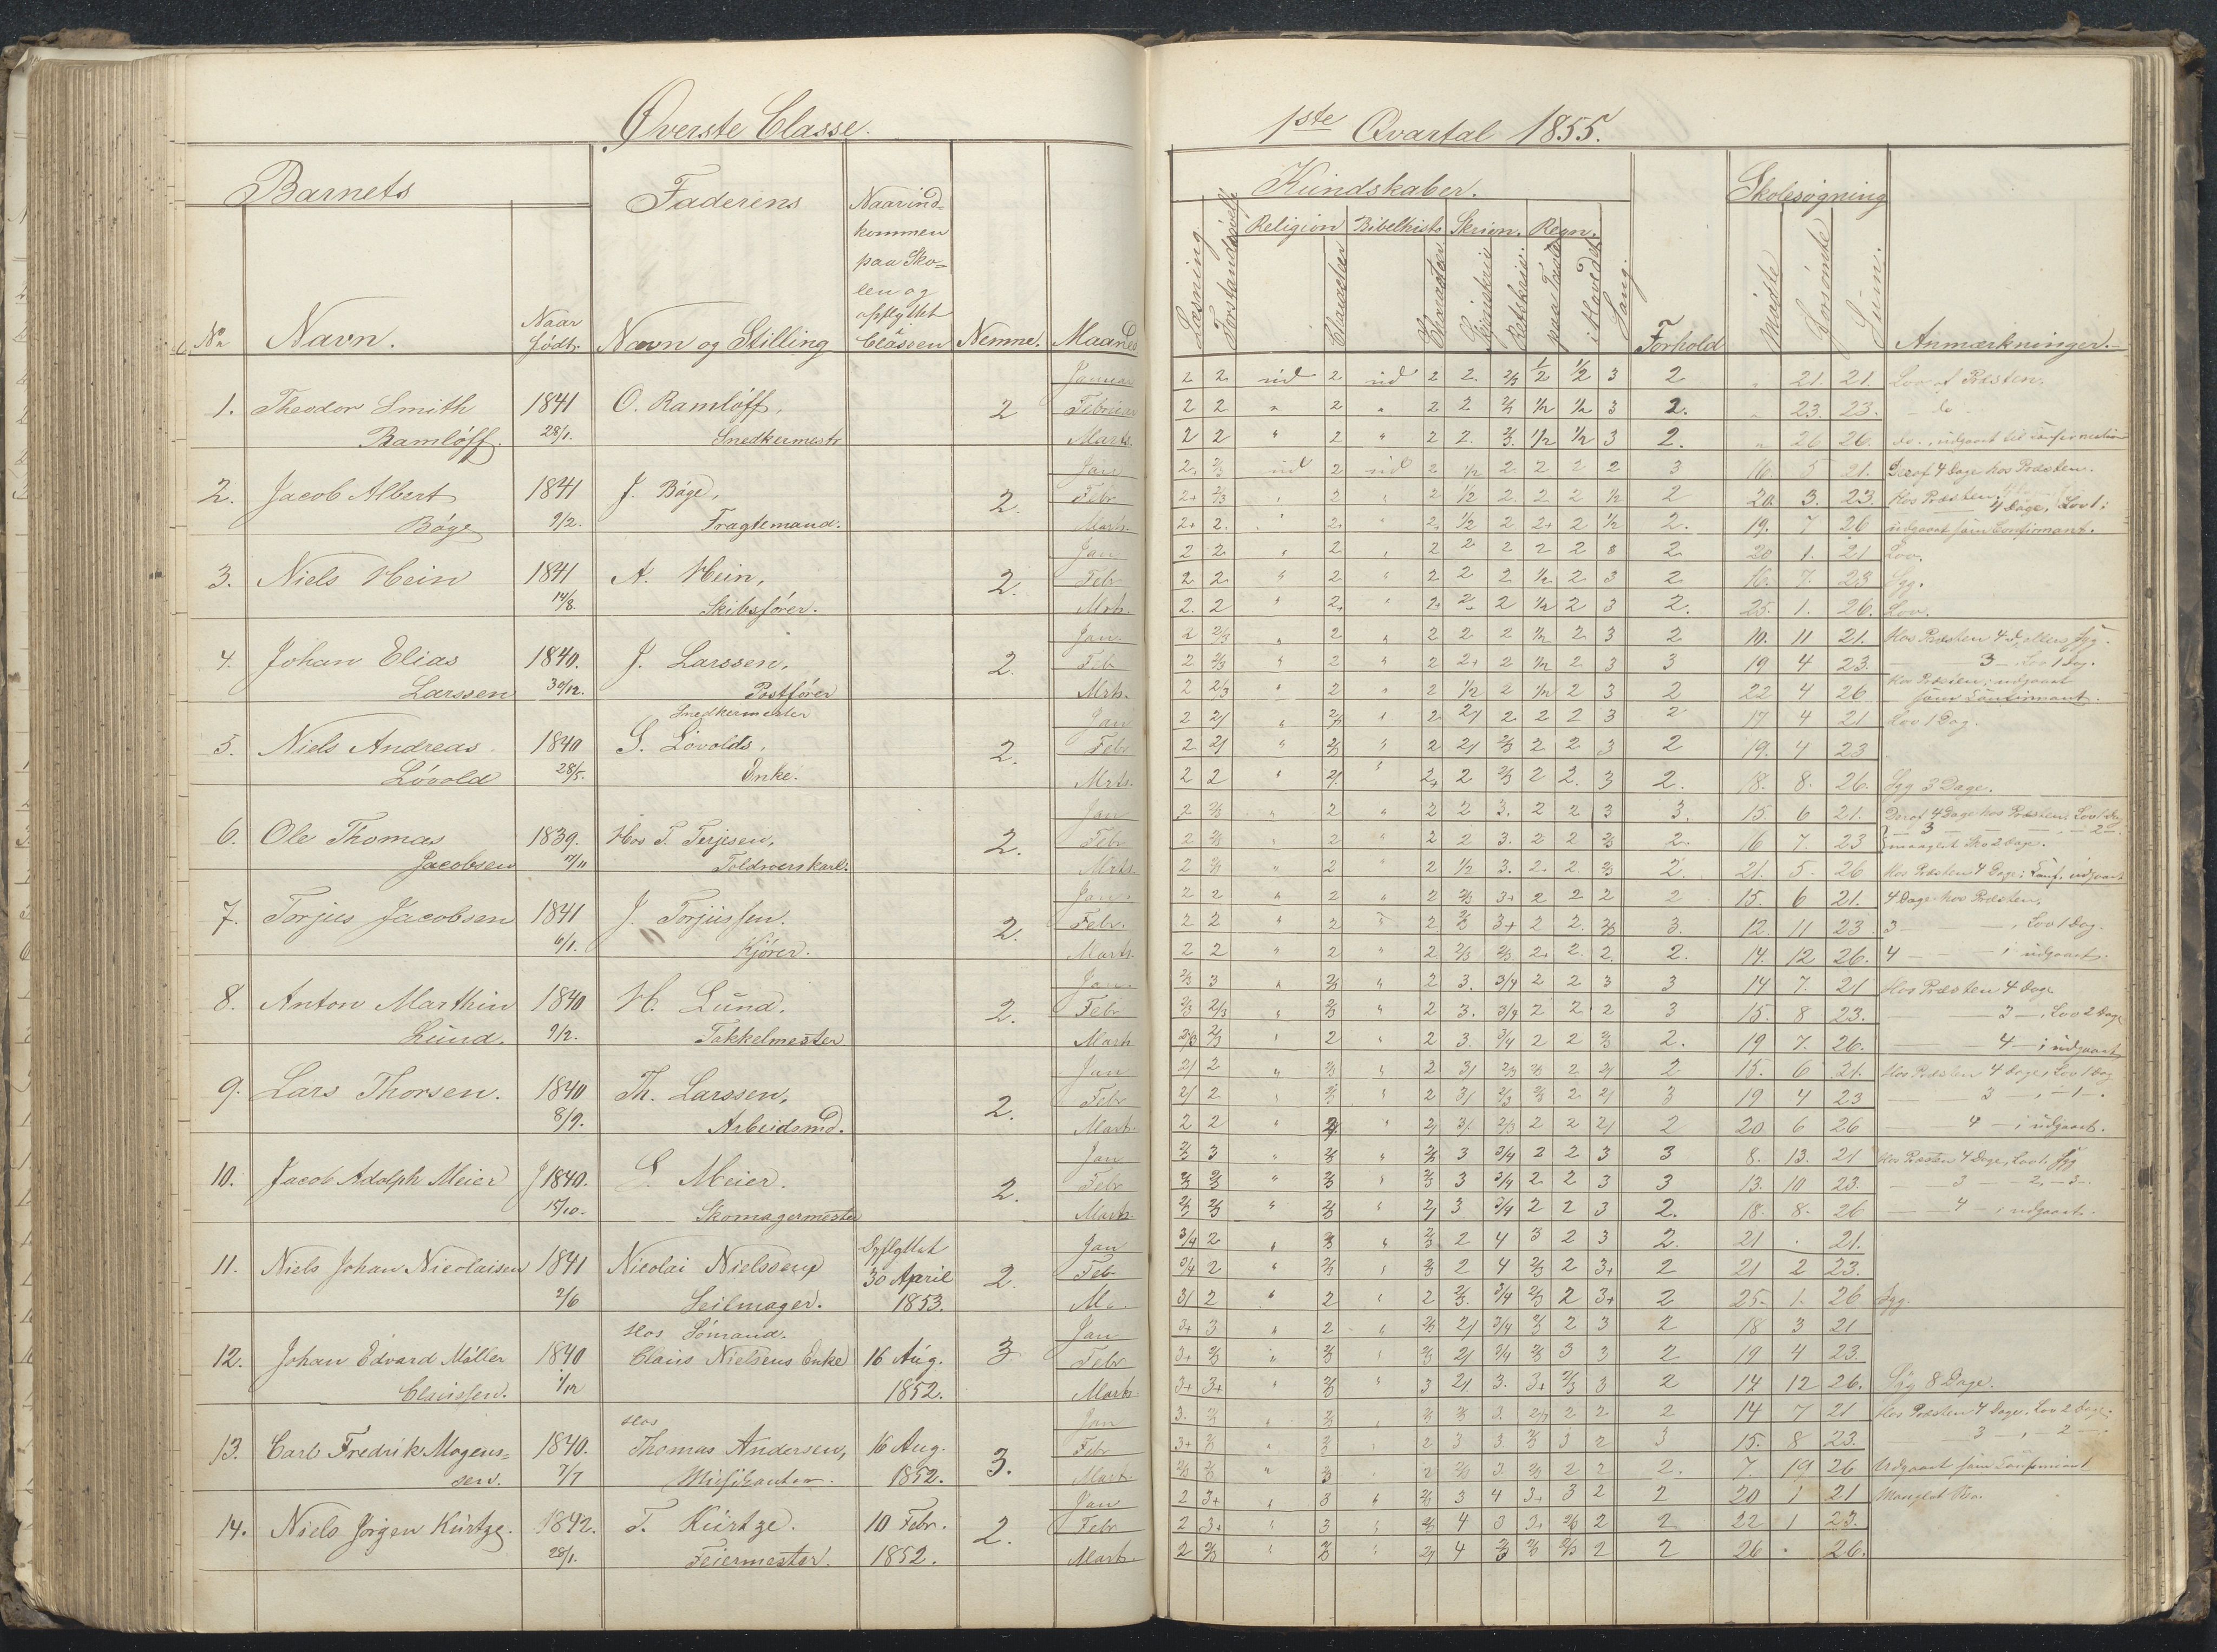 Øverste Classe.
1ste Qvartal 1855.
Barnets
Faderens
Naar ind-
kommen
paa Sko-
len og
opflyttet
i Classen
No
Navn.
Naar
født.
Navn og Stilling
Nemme.
Maaned
Kundskaber.
Skolesøgning
Læsning.
Forstandsøvelse
Religion
Bibelhist.
Skrivn.
Regn.
Characteer
Characteer
Retskriv.
paa Tavle
i Hovedet
Sang.
Forhold
Mødte
Forsømte
Sum.
Anmærkninger.
1. Theodor Smith 1841 O. Ramløff, 2
Ramløff. 28/1. Snedkermestr
Januar 2 2 ud 2 ud 2 2. 2/3 1/2 1/2 3 2 „ 21. 21. Lov af Præsten.
Februar 2 2 „ 2 „ 2 2 2/3 1/2 1/2 3 2. „ 23. 23. – do –
Marts. 2 2 „ 2 „ 2 2. 2/3. 1/2 1/2 3 2. „ 26 26. do., udgaaet til Confirmation
2. Jacob Albert 1841 J. Bøge, 2.
Bøge 9/2. Fragtemand.
Jan 2. 2/3 ud 2 ud 2 1/2 2. 2 2 2 3 16. 5 21. Deraf 4 Dage hos Præsten.
Febr 2+ 2/3 „ 2 „ 2 1/2 2. 2 2 1/2 2 20. 3. 23. Hos Præsten 4 Dage, Lov 1;
Marts. 2+ 2. „ 2+ „ 2+ 1/2 2 2+ 2 1/2 2. 19. 7 26 udgaaet som Confirmant.
3. Niels Hein 1841 A. Hein, 2.
14/8. Skibsfører.
Jan 2 2 „ 2 „ 2 2 2 2 2 3 2 20 1. 21 Lov.
Febr 2 2 „ 2 „ 2 2 2 1/2 2 3 2 16. 7. 23 Syg.
Mrts. 2. 2 „ 2+ „ 2+ 2+ 2 1/2 2 3 2. 25. 1. 26. Lov.
4. Johan Elias 1840. J. Larssen, 2.
Larssen 30/12. Postfører
Jan. 2 2/3 „ 2 „ 2 2 2 1/2 2 3 2 10. 11 21. Hos Præsten 4 D, ellers Syg.
Feb 2 2/3 „ 2 „ 2 2+ 2 1/2 2 3 3 19 4 23. – 3 –, Lov 1 Dag.
Mrts. 2 2/3 „ 2 „ 2 1/2 2 1/2 2 3 2 22 4 26 Hos Præsten; udgaaet
som Confirmant.
Snedkermester
5. Niels Andreas 1840 S. Løvolds, 2.
Løvold 28/5. Enke.
Jan 2 2/ „ 2/3 „ 2 2/ 2 2 2 3 2 17 4 21 Lov 1 Dag.
Febr 2 2/ „ 2/3 „ 2 2/ 2/3 2 2 3 2 19. 4 23
Mrts. 2 2 „ 2/ „ 2+ 2 2/3 2 2. 3 2. 18. 8. 26. Syg 3 Dage.
6. Ole Thomas 1839. Hos T. Terjesen, 2.
Jacobsen 17/11 Toldroerskarl.
Jan 2 2/3 „ 2 „ 2 2 3. 2 2 3 3. 15. 6 21. Deraf 4 Dage hos Præsten, Lov 1 Dag
Febr 2 2/3 „ 2 „ 2 2 3. 2 2 2/3 2. 16 7. 23 – 3 – – 2 –
manglet Sko 2 Dage.
Mrts. 2 2/3 „ 2 „ 2 1/2 3. 2. 2 2/3 2. 21. 5. 26 Hos Præsten 4 Dage; Conf. udgaaet
7. Torjus Jacobsen 1841 J. Torjussen. 2.
6/1. Kjører.
Jan. 2 2 „ 2 „ 2 2/3 3+ 2 2 2 2 15. 6 21. 4 Dage hos Præsten.
Febr. 2 2 „ 2 „ 2 2/3 3+ 2 2. 2/3 3. 12. 11 23. 3 – –, Lov 1 Dag.
Marts. 2 2 „ 2 „ 2 2/3 2/3. 2+ 2. 2. 2. 14. 12 26. 4 – – ; udgaaet.
8. Anton Marthin 1840 H. Lund. 2.
Lund. 9/2. Takkelmester.
Jan. 2/3 3 „ 2/3 „ 2 3. 3/4 2 2 3 3 14 7. 21 Hos Præsten 4 Dage
Febr 2/3 2/3 „ 2/3 „ 2 3. 3/4 2 2 2 3 15. 8 23. – 3 –, Lov 2 Dage
Marts 2/3 2/3 „ 2 „ 2 3. 3/4 2 2 2/3 2. 19 7. 26. – 4 – ; udgaaet
9. Lars Thorsen. 1840 Th. Larssen, 2.
8/9. Arbeidsmd.
Jan 2/ 2 „ 2/3 „ 2 3/ 2/3 2/3 2 2/ 2 15. 6 21. Hos Præsten 4 Dage, Lov 1 Dag
Febr 2/ 2 „ 2/3 „ 2 3/ 2/3 2/3 2 2/ 3 19 4 23 – 3 –, – 1 –.
Marts. 2 2 „ 2/ „ 2/ 3/. 2/3 2 2 2/ 2 20. 6 26 – 4 – ; udgaaet.
10. Jacob Adolph Meier 1840. S. Meier. 2.
15/10. Skomagermester
Jan 2/3 3 „ 2/3 „ 2/3 3 3/4 2 2 3 3 8. 13. 21 Hos Præsten 4 Dage, Lov 1. Syg
Febr 2/3 2/3 „ 2/3 „ 2/3 3 3/4 2 2 3 3 13. 10 23. – 3 – – 2, – 3 –.
Marts. 2/3 2/3 „ 2/3 „ 2/ 3 3/4 2 2 3 2. 18. 8. 26 – 4 – ; udgaaet.
11. Niels Johan Nicolaisen 1841 Nicolai Nielssen Opflyttet 2.
30 April
2/6 Seilmager. 1853.
Jan 3/4 2 „ 3 „ 2/3 2 4 3 2 3 2. 21 . 21.
Feb 3/4 2 „ 2/3 „ 2/3 2 4 2/3 2 3+ 2 21 2 23.
Ma. 3/ 2 „ 2 „ 2 2/3. 3/4 2/3 2 3+ 2 25. 1. 26 Syg.
Hos Sømand.
12. Johan Edvard Møller 1840 Claus Nielsens Enke 16 Aug. 3
Claussen. 1/12 1852.
Jan 3+ 3 „ 2 „ 2/3 2/ 3/4 2/3 2 3 2 18 3 21
Febr 3+ 2/3 „ 2/3 „ 2/3 2/ 3/4 2/3 3 3 2 19 4 23.
Marts. 3+ 3+ „ 2/3 „ 3 2/. 3. 3+ 2/3 3 2 14 12 26. Syg 8 Dage.
Hos
13. Carl Fredrik Mogens- 1840. Thomas Andersen, 16 Aug. 3.
sen. 7/7 1852.
Jan 3. 2/3 „ 2/3 „ 2/3 2/3 3. 2/3 2 2 2 14 7 21 Hos Præsten 4 Dage. Lov 2 Dage.
Febr 3+ 2/3 „ 2/3 „ 2 3 3. 2/3 3 2 3 15. 8 23. – 3 –, – 2 –.
Marts 2/3 2/3 „ 2/3 „ 2 2/3 3. 2/3 2 2 2. 7. 19 26 Udgaaet som Confirmant
14. Niels Jørgen Kürtze. 1842. T. Kürtze. 10 Febr. 2.
28/1. Feiermester. 1852.
Jan 2 3+ „ 3 „ 2/3 3 4 3+ 3 2 2 20 1 21 Manglet Sko.
Febr 2 3+ „ 3 „ 2/3 4 3 3+ 2/3 2 2 22 1 23.
Marts 2 2/3 „ 2/3 „ 2/ 4 2/3 2/3 2/3 2 2 26 . 26.